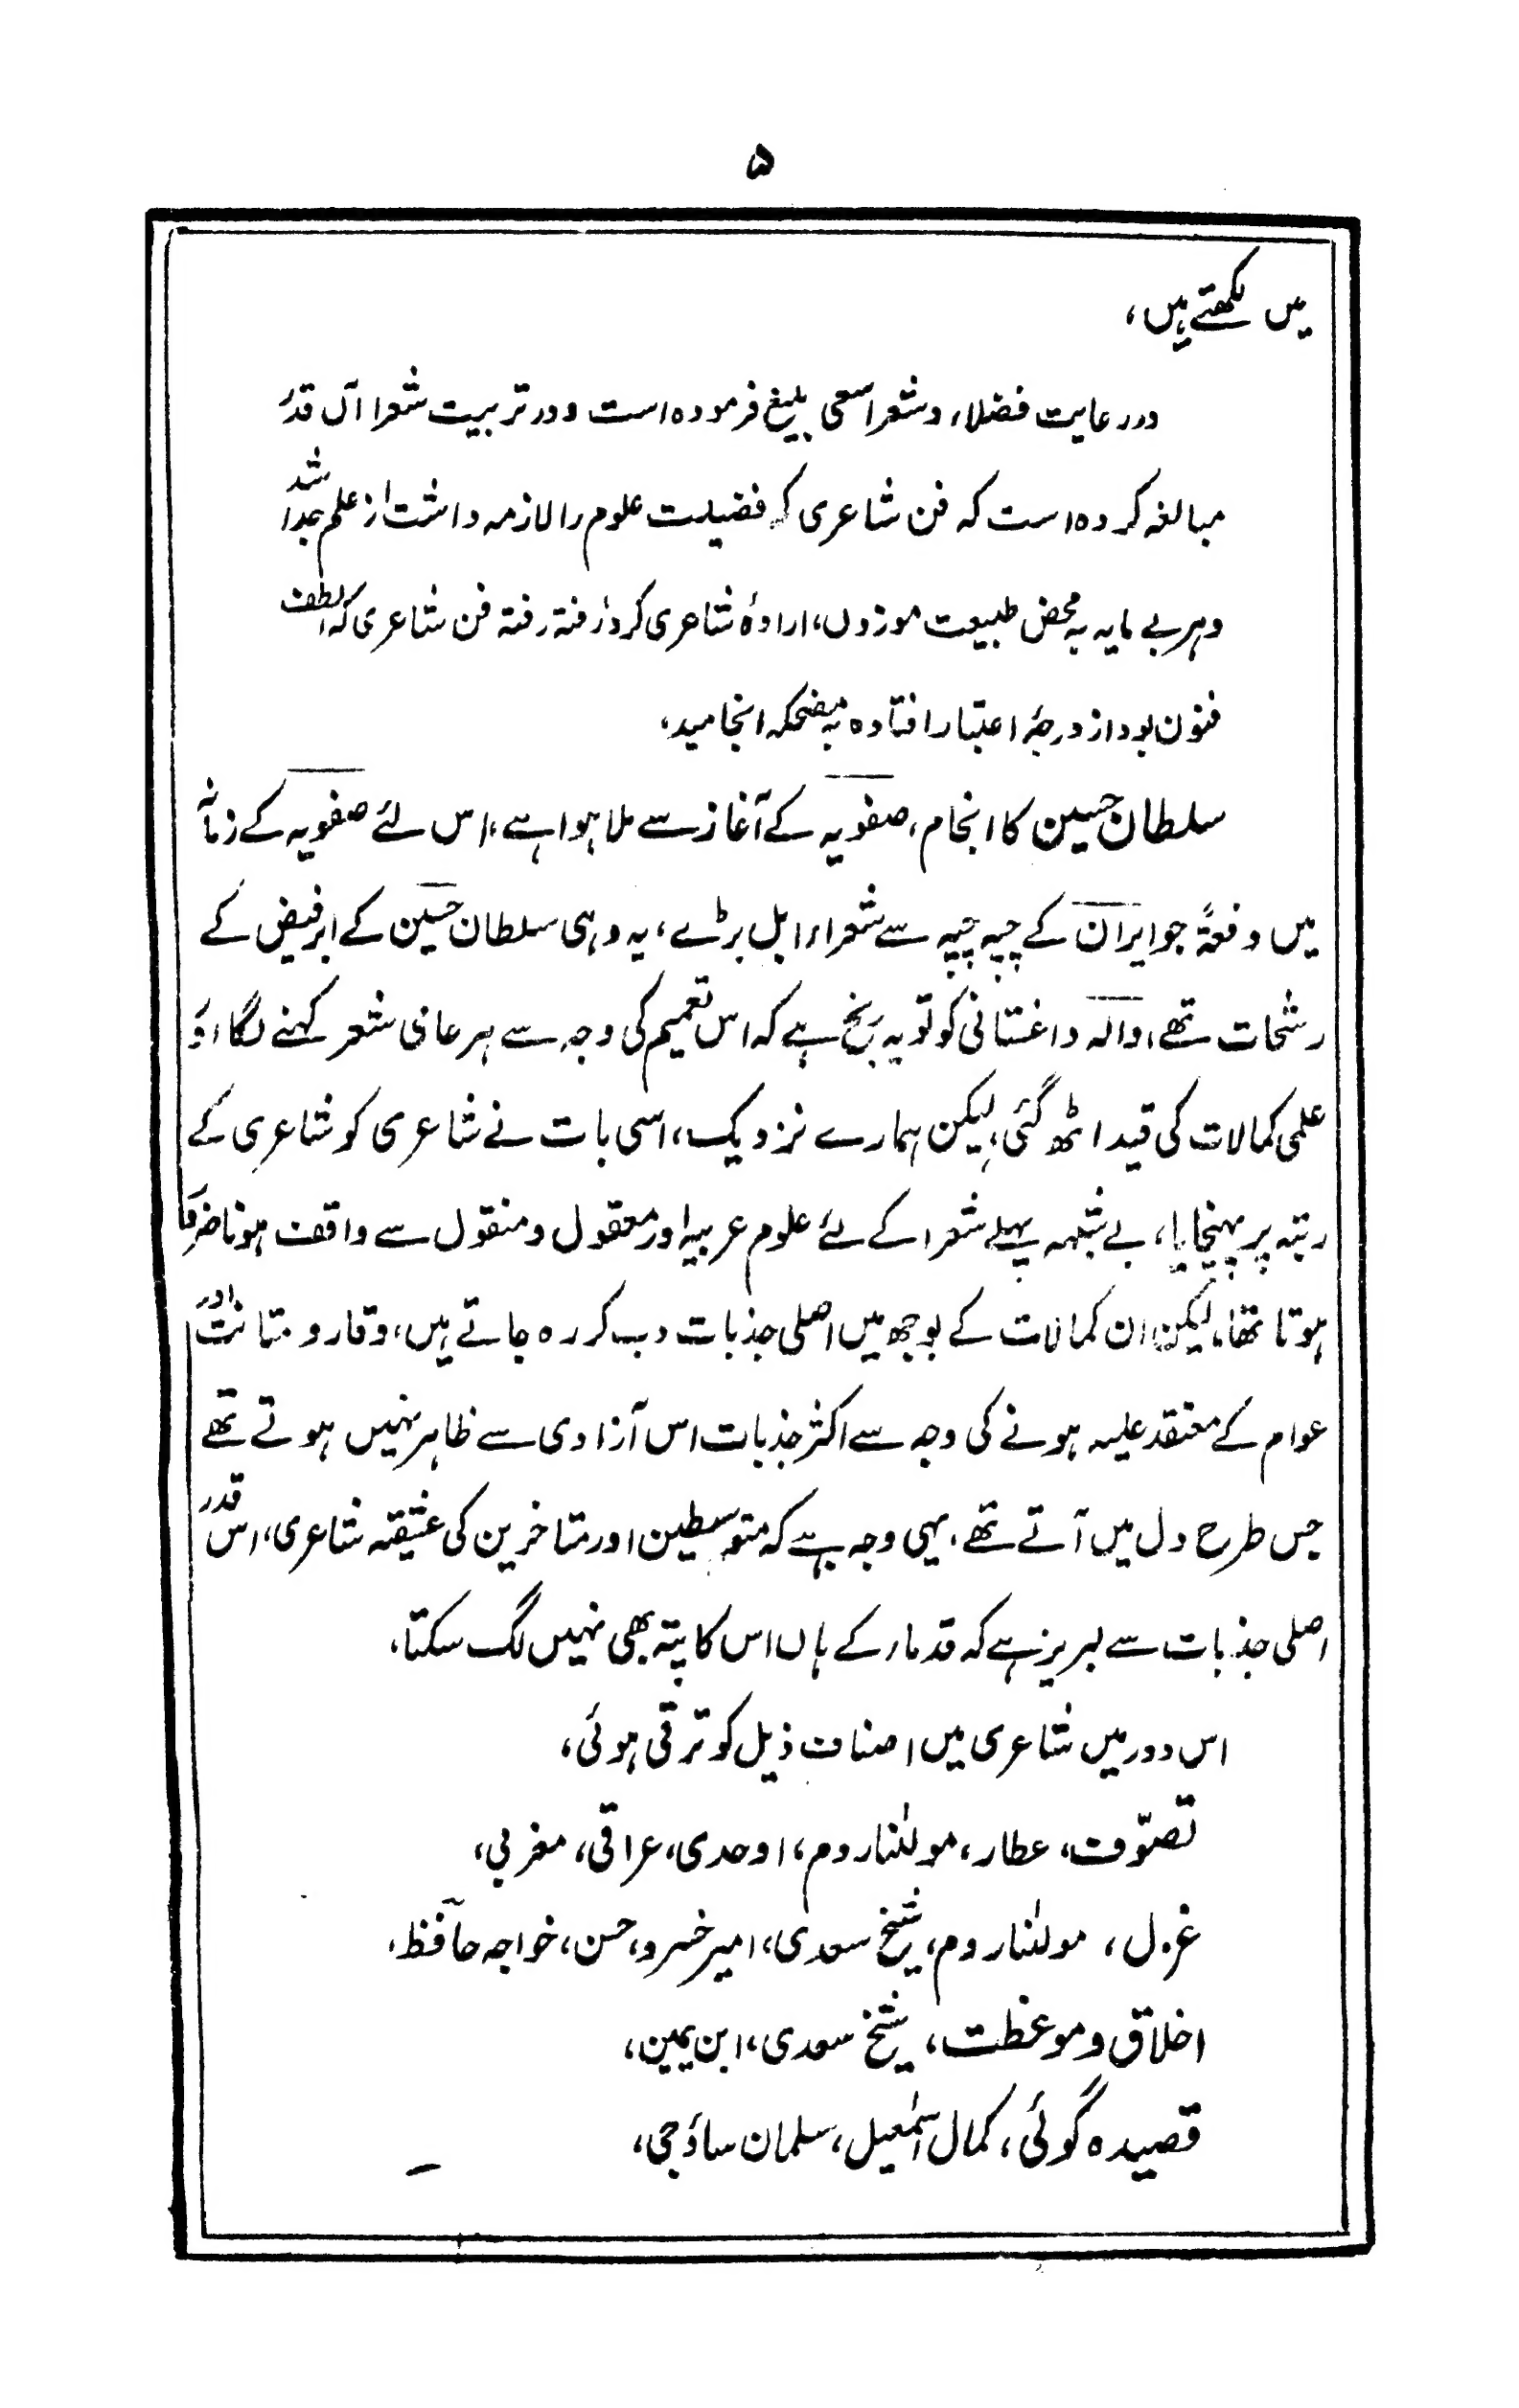 ۵
میں لکھتے ہیں،
در رعایت فضلاء و شعرا سعی بلیغ فرموده است و در تربیت شعرا آں قدر
مبالغہ کرده است کہ فن شاعری کہ فضیلت علوم را لازمہ داشت از علم جدا شد
و ہر بے مایہ بہ محض طبیعت موزوں، ارادۂ شاعری کرد، رفتہ رفتہ فن شاعری کہ الطف
فنون بود از درجۂ اعتبار افتادہ بہ مضحکہ انجامید،
سلطان حسین کا انجام، صفویہ کے آغاز سے ملا ہوا ہے، اس لئے صفویہ کے زمانہ
میں دفعۃً جو ایران کے چپہ چپہ سے شعراء ابل پڑے، یہ وہی سلطان حسین کے ابر فیض کے
رشحات تھے، والہ داغستانی کو تو یہ رنج ہے کہ اس تعمیم کی وجہ سے ہر عامی شعر کہنے لگا اور
علمی کمالات کی قید اٹھ گئی، لیکن ہمارے نزدیک، اسی بات نے شاعری کو شاعری کے
رتبہ پر پہنچایا، بے شبہہ پہلے شعرا کے لئے علوم عربیہ اور معقول و منقول سے واقف ہونا ضرور
ہوتا تھا، لیکن ان کمالات کے بوجھ میں اصلی جذبات دب کر رہ جاتے ہیں، وقار و متانت اور
عوام کے معتقد علیہ ہونے کی وجہ سے اکثر جذبات اس آزادی سے ظاہر نہیں ہوتے تھے
جس طرح دل میں آتے تھے، یہی وجہ ہے کہ متوسطین اور متاخرین کی عشقیہ شاعری، اس قدر
اصلی جذبات سے لبریز ہے کہ قدماء کے ہاں اس کا پتہ بھی نہیں لگ سکتا،
اس دور میں شاعری میں اصناف ذیل کو ترقی ہوئی،
تصوّف، عطار، مولٰنا روم، اوحدی، عراقی، مغربی،
غزل، مولٰنا روم، شیخ سعدی، امیر خسرو، حسن، خواجہ حافظ،
اخلاق و موعظت، شیخ سعدی، ابن یمین،
قصیدہ گوئی، کمال اسمٰعیل، سلمان ساؤجی،